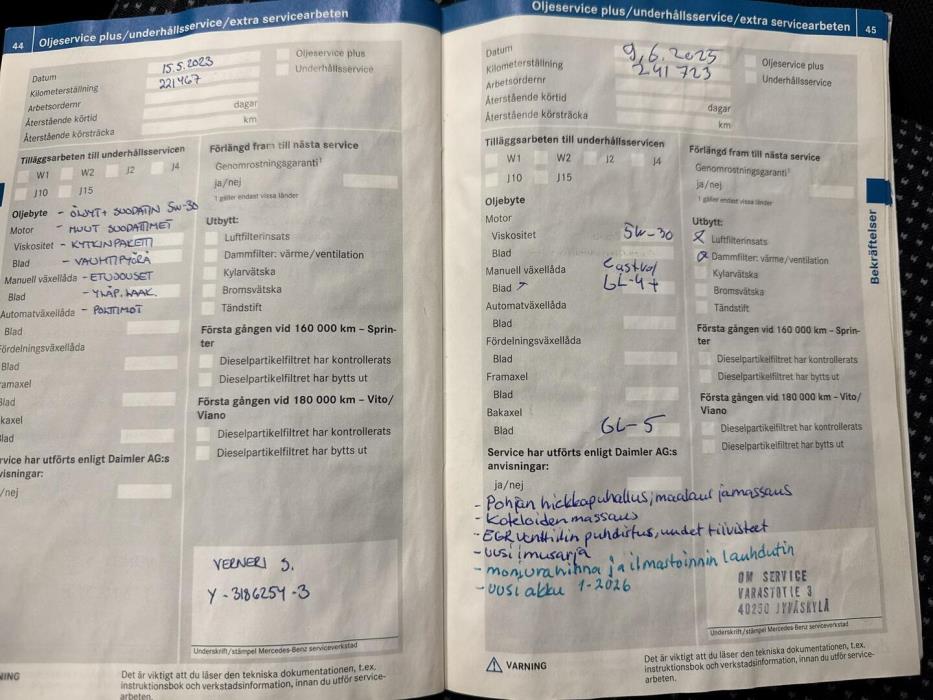 44 Oljeservice plus/underhållsservice/extra servicearbeten
Datum 15.5.2023
Kilometerställning 221467
Arbetsordernr
Återstående körtid dagar
Återstående körsträcka km
Oljeservice plus
Underhållsservice
Tilläggsarbeten till underhållsservicen
W1 W2 J2 J4
J10 J15
Förlängd fram till nästa service
Genomrostningsgaranti¹
ja/nej
¹ gäller endast vissa länder
Oljebyte - ÖLJYT + SUODATIN 5W-30
Motor - MUUT SUODATTIMET
Viskositet - KYTKINPAKETTI
Blad - VAUHTIPYÖRÄ
Manuell växellåda - ETUJOUSET
Blad - YLÄP. LAAK.
Automatväxellåda - POLTTIMOT
Blad
Fördelningsväxellåda
Blad
ramaxel
Blad
kaxel
lad
rvice har utförts enligt Daimler AG:s
visningar:
/nej
Utbytt:
Luftfilterinsats
Dammfilter: värme/ventilation
Kylarvätska
Bromsvätska
Tändstift
Första gången vid 160 000 km – Sprin-
ter
Dieselpartikelfiltret har kontrollerats
Dieselpartikelfiltret har bytts ut
Första gången vid 180 000 km – Vito/
Viano
Dieselpartikelfiltret har kontrollerats
Dieselpartikelfiltret har bytts ut
VERNERI S.
Y-3186254-3
Underskrift/stämpel Mercedes-Benz serviceverkstad
NING
Det är viktigt att du läser den tekniska dokumentationen, t.ex.
instruktionsbok och verkstadsinformation, innan du utför service-
arbeten.
Oljeservice plus/underhållsservice/extra servicearbeten 45
Datum 9.6.2025
Kilometerställning 241 723
Arbetsordernr
Återstående körtid dagar
Återstående körsträcka km
Oljeservice plus
Underhållsservice
Tilläggsarbeten till underhållsservicen
W1 W2 J2 J4
J10 J15
Förlängd fram till nästa service
Genomrostningsgaranti¹
ja/nej
¹ gäller endast vissa länder
Oljebyte
Motor
Viskositet 5W-30
Blad
Manuell växellåda Castrol
Blad GL-4+
Automatväxellåda
Blad
Fördelningsväxellåda
Blad
Framaxel
Blad
Bakaxel
Blad GL-5
Service har utförts enligt Daimler AG:s
anvisningar:
ja/nej
Utbytt:
x Luftfilterinsats
x Dammfilter: värme/ventilation
Kylarvätska
Bromsvätska
Tändstift
Första gången vid 160 000 km – Sprin-
ter
Dieselpartikelfiltret har kontrollerats
Dieselpartikelfiltret har bytts ut
Första gången vid 180 000 km – Vito/
Viano
Dieselpartikelfiltret har kontrollerats
Dieselpartikelfiltret har bytts ut
- Pohjan hiekkapuhallus, maalaus ja massaus
- Koteloiden massaus
- EGR venttiilin puhdistus, uudet tiivisteet
- uusi imusarja
- moniurahihna ja ilmastoinnin lauhdutin
- uusi akku 1-2026
OM SERVICE
VARASTOTIE 3
40250 JYVÄSKYLÄ
Underskrift/stämpel Mercedes-Benz serviceverkstad
VARNING
Det är viktigt att du läser den tekniska dokumentationen, t.ex.
instruktionsbok och verkstadsinformation, innan du utför service-
arbeten.
Bekräftelser